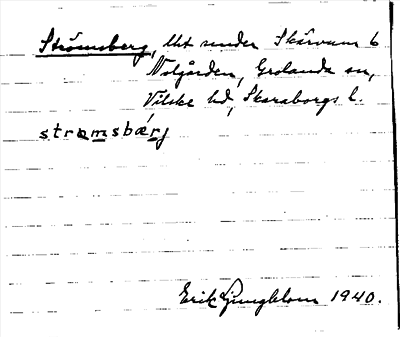 Strömsberg, lht under Skårvum 6
Nolgården, Grolanda sn,
Vilske hd, Skaraborgs l.
strɷmsbærj
Erik Ljungblom 1940.